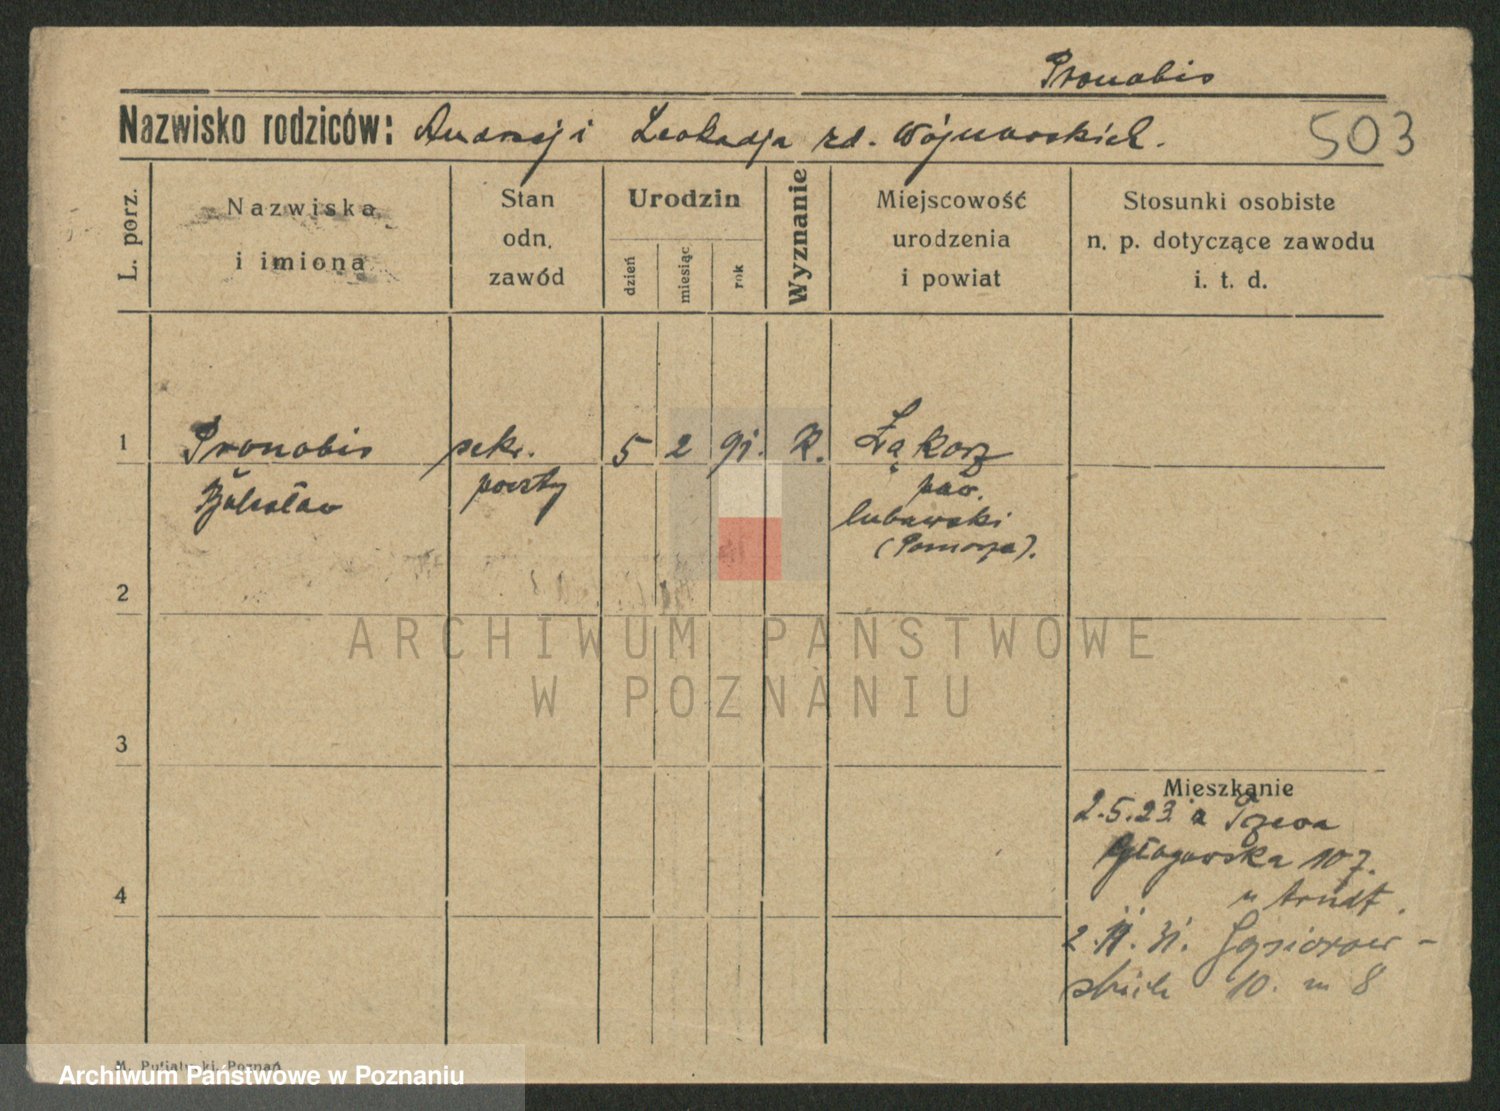 Pronobis
Nazwisko rodziców: Andrzej i Leokadja zd. Wójnowskich.
503
L. porz.
Nazwiska
i imiona
Stan
odn.
zawód
Urodzin
dzień
miesiąc
rok
Wyznanie
Miejscowość
urodzenia
i powiat
Stosunki osobiste
n. p. dotyczące zawodu
i. t. d.
1 Pronobis sekr. 5 2 91. K. Łąkorz
Bolesław poczty pow.
lubawski
(Pomorze).
2
ARCHIWUM PAŃSTWOWE
W POZNANIU
3
Mieszkanie
2.5.23 a Tczewa
Głogowska 107.
u Arndt.
4
2.11.31. Gąsiorow-
skich 10. m 8
Poznań
Archiwum Państwowe w Poznaniu